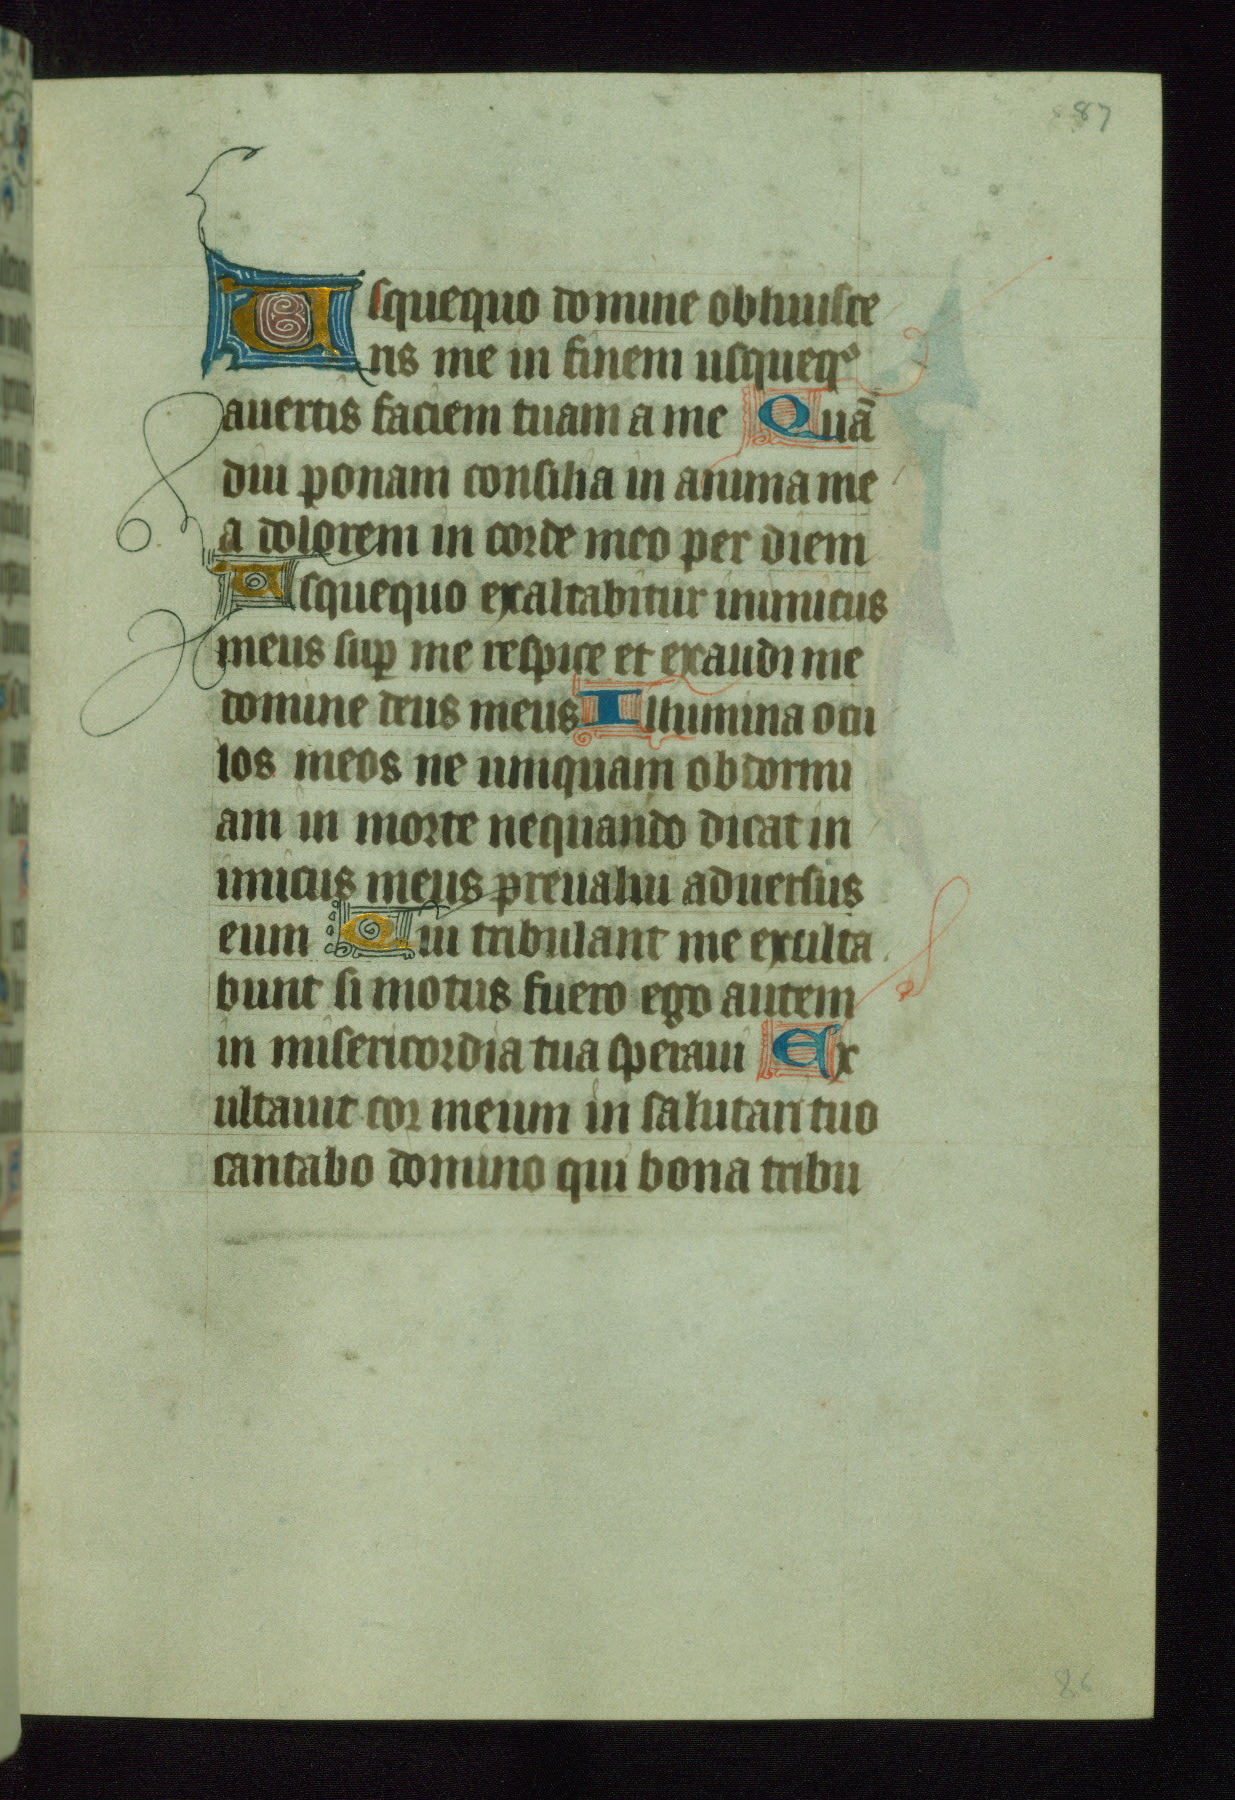 87
Usquequo domine obliuisce
ris me in finem usqueqo
auertis faciem tuam a me Quā
diu ponam consilia in anima me
a dolorem in corde meo per diem
Usquequo exaltabitur inimicus
meus sup me respice et exaudi me
domine deus meus Illumina ocu
los meos ne umquam obdormi
am in morte nequando dicat in
imicus meus preualui aduersus
eum Qui tribulant me exulta
bunt si motus fuero ego autem
in misericordia tua speraui Ex
ultauit cor meum in salutari tuo
cantabo domino qui bona tribu
86